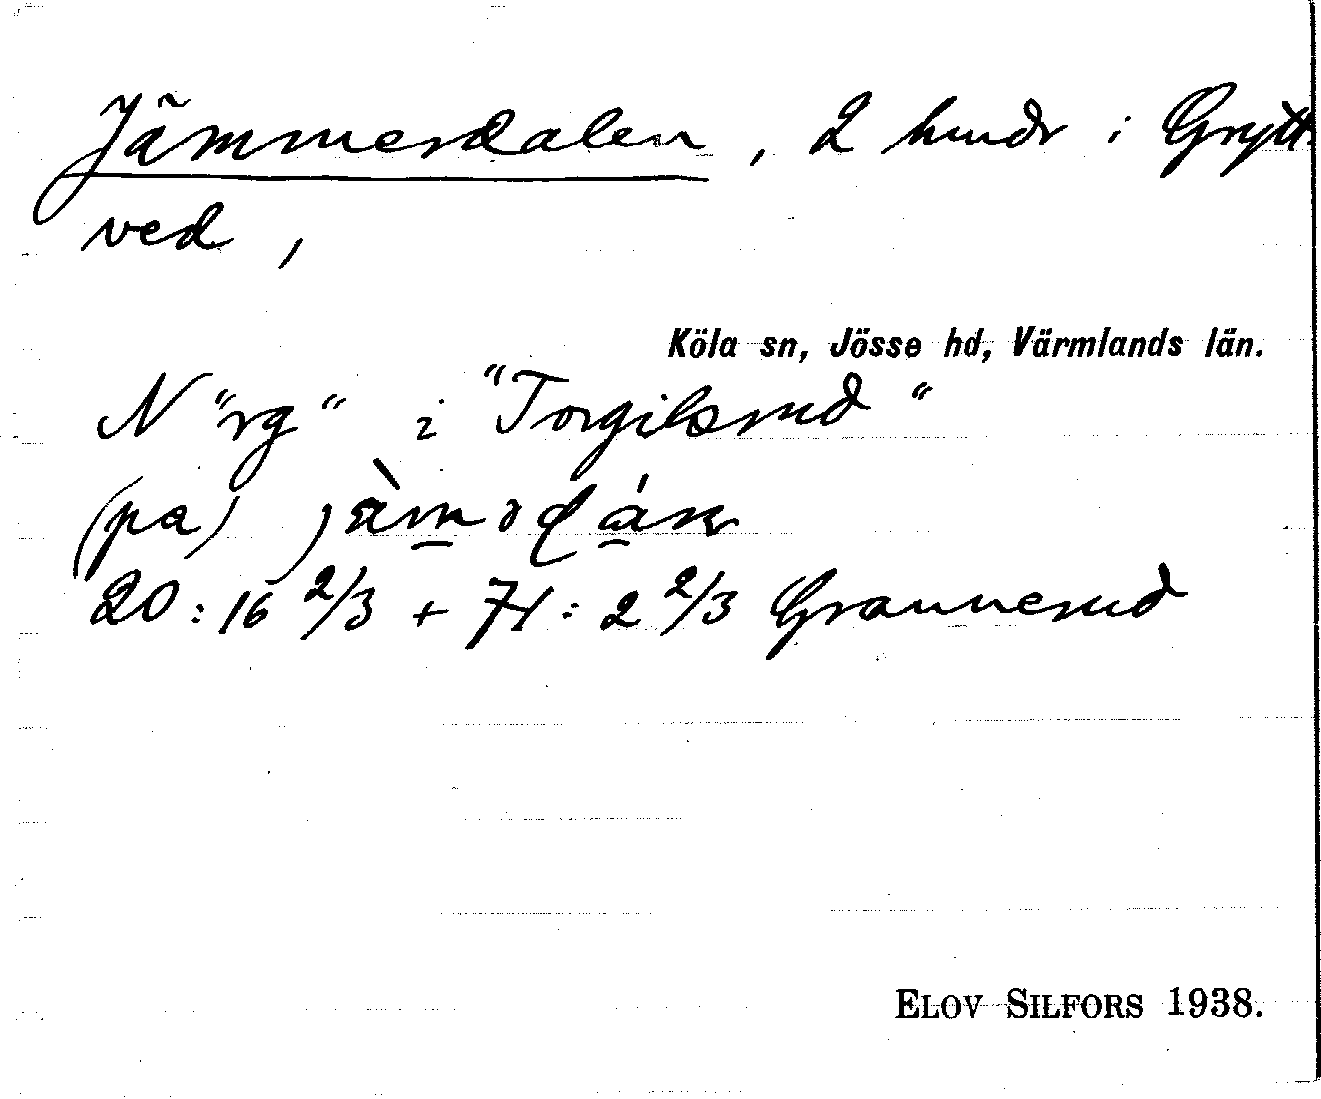 Jämmerdalen, 2 hmdr i Grytt
ved,
Köla sn, Jösse hd, Värmlands län.
N "rg" i "Torgilsrud"
(pa)
20:16 2/3 + 71:2 2/3 Grannerud
ELOV SILFORS 1938.